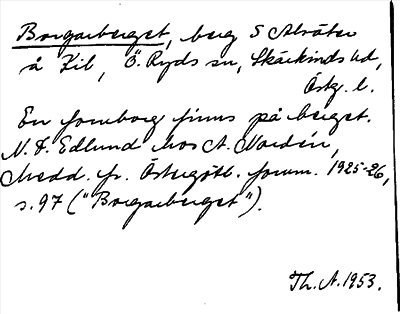 Borgarberget, berg S Alsäter
å Kil, Ö. Ryds sn, Skärkinds hd,
Östg. l.
En fornborg finns på berget.
N. F. Edlund hos A. Nordén,
Medd. fr. Östergötl. fornm. 1925-26,
s. 97 ("Borgarberget").
Th. A. 1953.